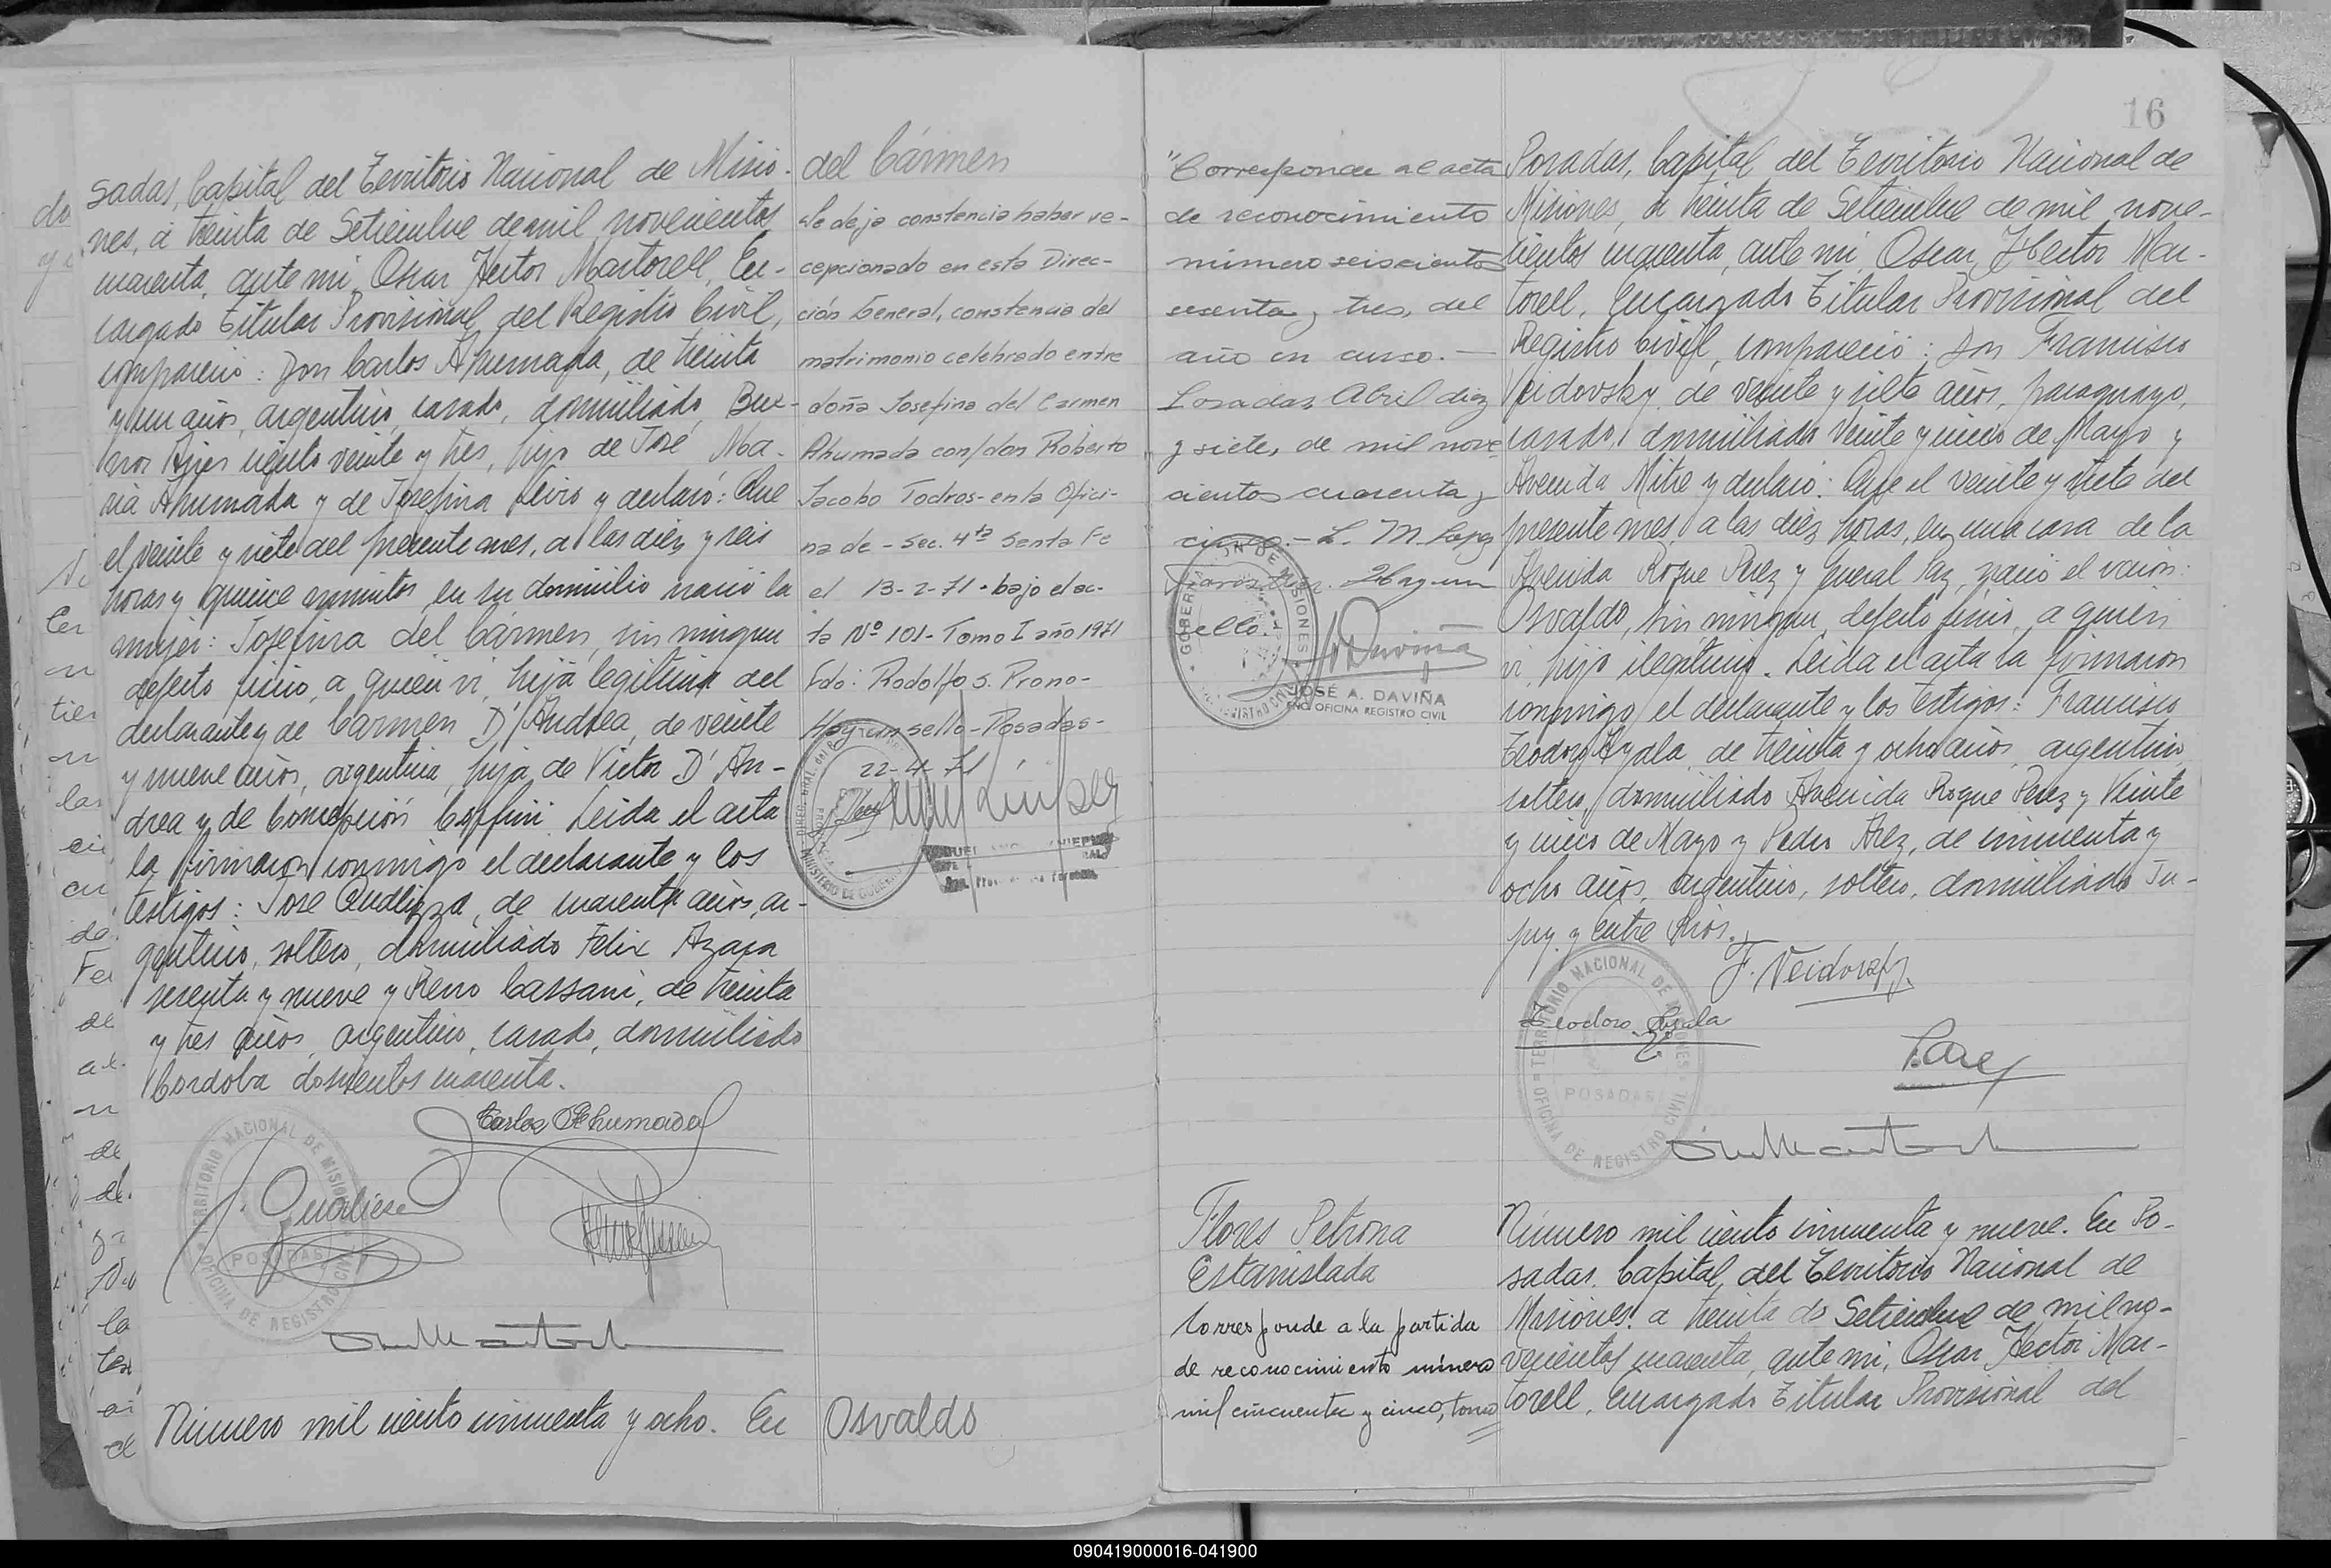 sadas, Capital del Territorio Nacional de Misio-
nes, a treinta de Setiembre de mil novecientos
cuarenta, ante mi, Oscar Hector Martorell, En-
cargado Titular Provisional del Registro Civil,
compareció: Don Carlos Ahumada, de treinta
y un años, argentino, casado, domiciliado, Bue-
nos Aires ciento veinte y tres, hijo de José Ma-
ria Ahumada y de Josefina y declaró: Que
el veinte y siete del presente mes, a las diez y seis
horas y quince minutos, en su domicilio nació la
mujer: Josefina del Cármen, sin ningun
defecto fisico, a quien vi, hija legitima del
declarante y de Carmen D'Andrea, de veinte
y nueve años, argentina, hija de Victor D'An-
drea y de Concepción Coffini. Leida el acta
la firmaron conmigo el declarante y los
testigos: José, de cuarenta años, ar-
gentino, soltero, domiciliado Felix Azara
sesenta y nueve y Remo Cassani, de treinta
y tres años, argentino, casado, domiciliado
Cordoba doscientos cuarenta.
Carlos Ahumada
TERRITORIO NACIONAL DE MISIONES
POSADAS
OFICINA DE REGISTRO CIVIL
Número mil ciento cincuenta y ocho. En
del Cármen
Se deja constancia haber re-
cepcionado en esta Direc-
ción General, constancia del
matrimonio celebrado entre
doña Josefina del Carmen
Ahumada con/don Roberto
Jacobo Todros-en la Ofici-
na de - Sec. 4ta Santa Fe
el 13-2-71 - bajo el ac-
ta Nº 101- Tomo I año 1971
Fdo: Rodolfo S. Prono-
Hay un sello-Posadas-
22-4-71
MINISTERIO DE GOBIERNO
Osvaldo
16
"Corresponde al acta
de reconocimiento
número seiscientos
sesenta y tres, del
año en curso.—
Posadas Abril diez
y siete, de mil nove
cientos cuarenta y
cinco.- L. M.
Hay un
sello.
JOSÉ A. DAVIÑA
ENC. OFICINA REGISTRO CIVIL
Posadas, Capital del Territorio Nacional de
Misiones, a treinta de Setiembre de mil nove-
cientos cuarenta, ante mi, Oscar Hector Mar-
torell, Encargado Titular Provisional del
Registro Civil, compareció: Don Francisco
Veidovsky, de veinte y siete años, paraguayo,
casado, domiciliado Veinte y cinco de Mayo y
Avenida Mitre y declaró: Que el veinte y siete del
presente mes, a las diez horas, en una casa de la
Avenida Roque Perez y General Paz, nació el varón:
Osvaldo, sin ningun defecto fisico, a quien
vi, hijo ilegitimo. Leida el acta la firmaron
conmigo el declarante y los testigos: Francisco
Teodoro Ayala, de treinta y ocho años, argentino,
soltero, domiciliado Avenida Roque Perez y Veinte
y cinco de Mayo y Pedro, de cincuenta y
ocho años, argentino, soltero, domiciliado Ju-
juy y Entre Rios.
F. Veidovsky.
Teodoro Ayala
TERRITORIO NACIONAL DE MISIONES
POSADAS
OFICINA DE REGISTRO CIVIL
Flores Petrona
Estanislada
Corresponde a la partida
de reconocimiento número
mil cincuenta y cinco, tomo
Número mil ciento cincuenta y nueve. En Po-
sadas, Capital del Territorio Nacional de
Misiones, a treinta de Setiembre de mil no-
vecientos cuarenta, ante mi, Oscar Hector Mar-
torell, Encargado Titular Provisional del
090419000016-041900